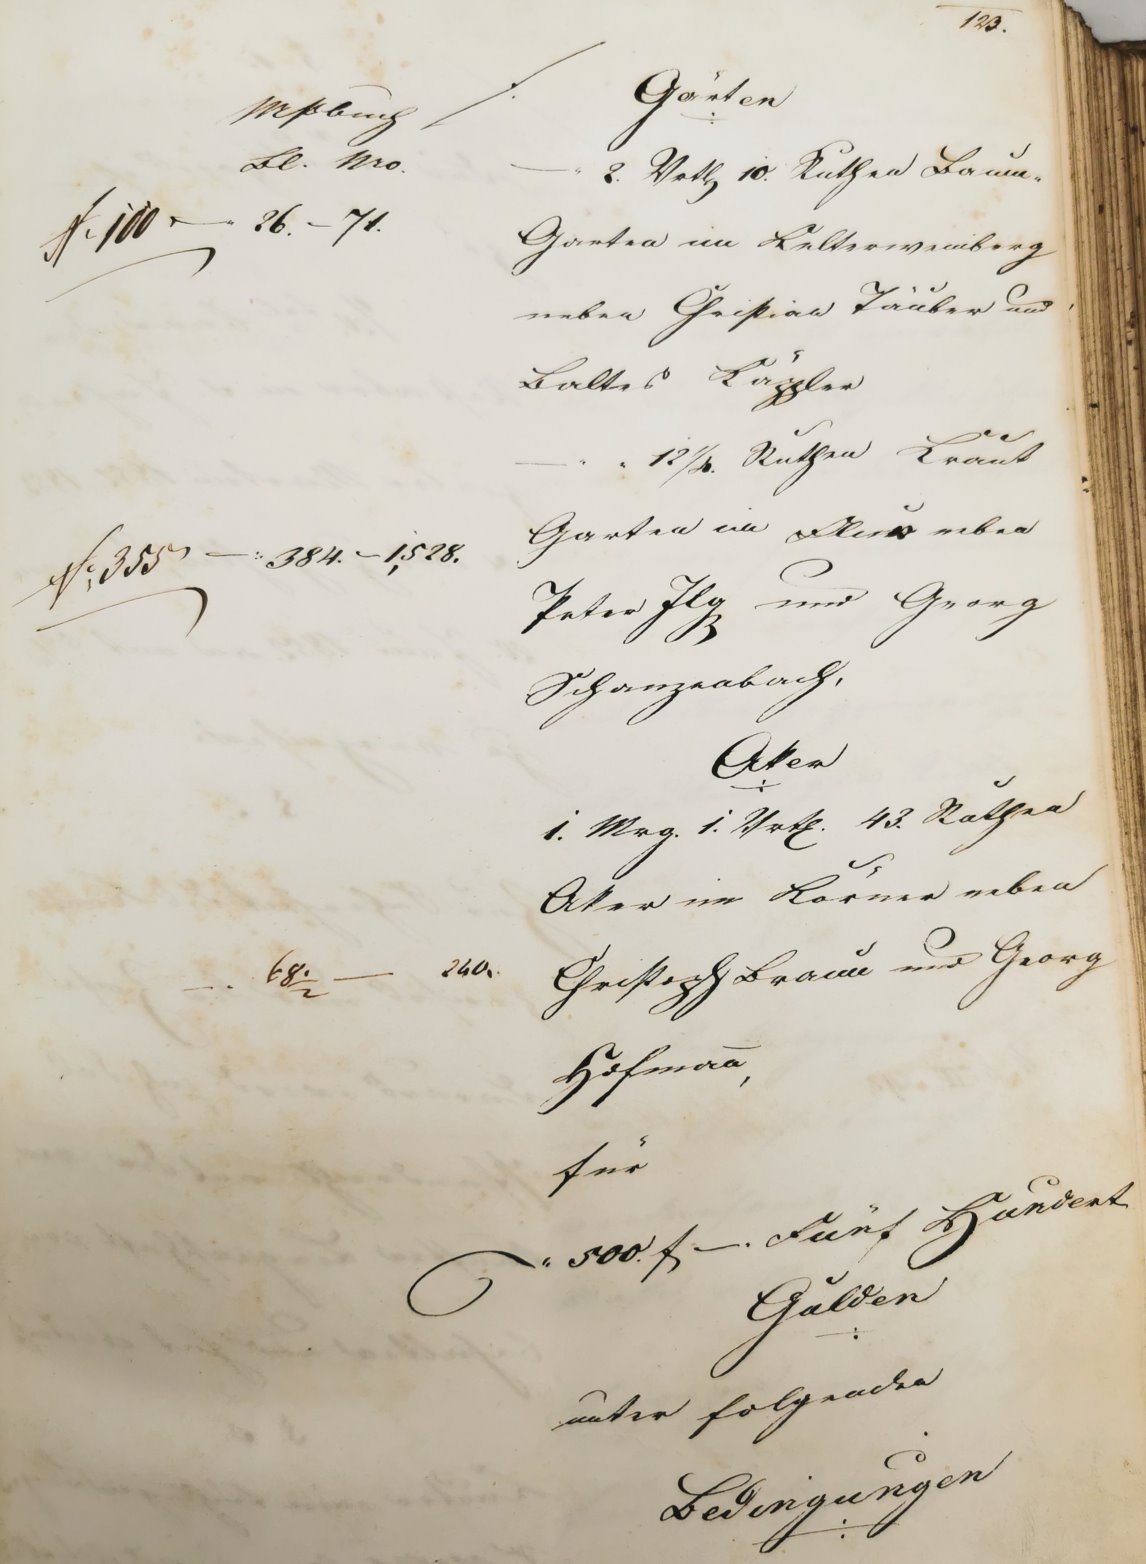 123.
Gärten
Mßbuch
Bl. Nro.
— " 2. Vrtl 10. Ruthen Baum-
100 — " 26. — 71.
Garten im Kelterweinberg
neben Christian Täuber und
Baltes Käppler
— " " 12 1/4. Ruthen Kraut
Garten im neben
355 — " 384. — 1,528.
Peter Ilg und Georg
Schanzenbach,
Aker
1. Mrg. 1. Vrtl. 43. Ruthen
Aker im Körner neben
68./2 — 240.
Christoph Braun und Georg
Hofmann,
für
" 500. f —. Fünf Hundert
Gulden
unter folgenden
Bedingungen